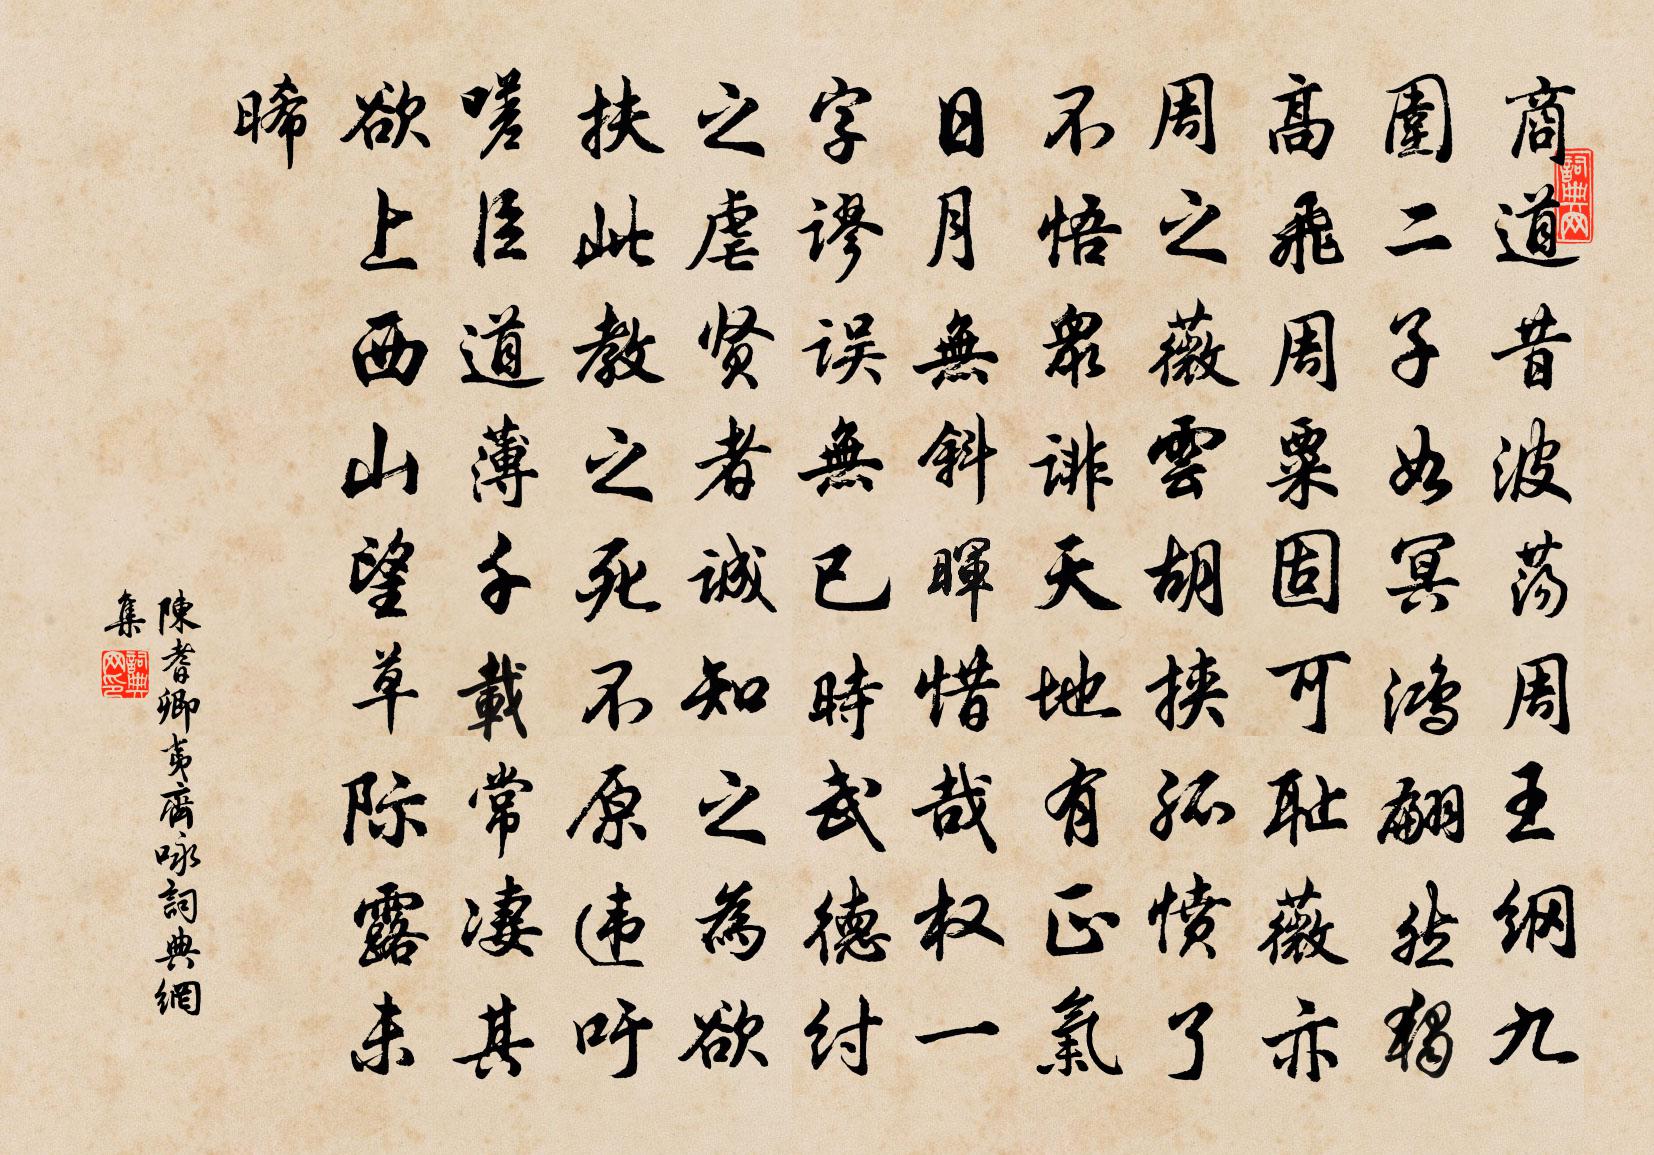 商道昔波荡周王纲九
圍二子如冥鴻翩然獨
髙飛周粟固可耻薇亦
周之薇雲胡挾孤憤了
不悟眾誹天地有正氣
日月無斜暉惜哉权一
字谬误無已時武德纣
之虐贤者诚知之為欲
扶此教之死不原违吁
嗟臣道薄千載常凄其
欲上西山望草际露未
晞
陳耆卿夷齊咏詞典網
集
詞典网
詞典网印